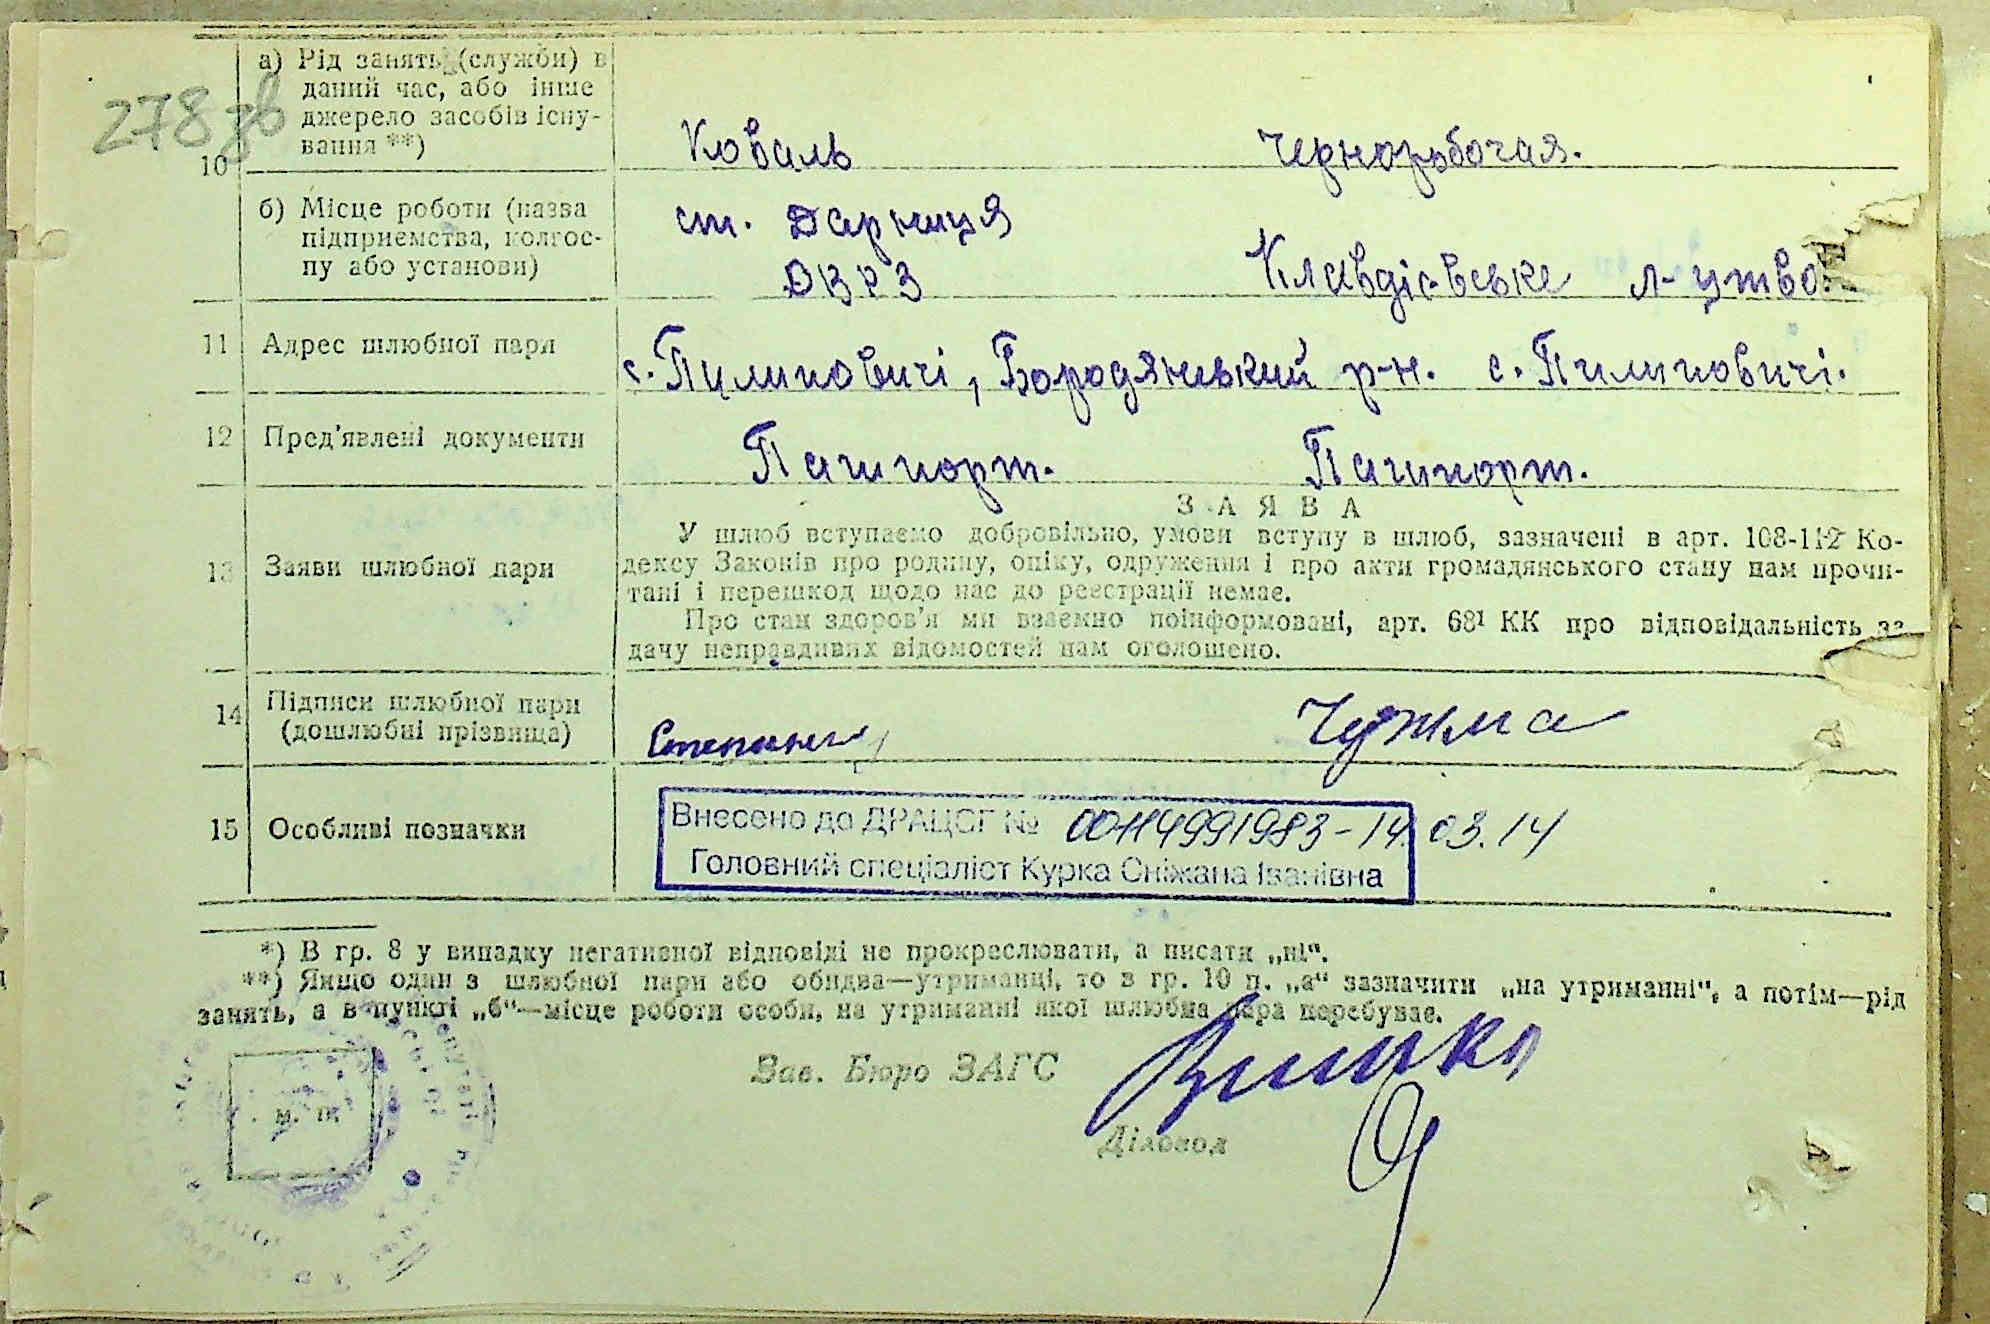 278 зв
а) Рід занять (служби) в
даний час, або інше
джерело засобів існу-
вання **)
10
Коваль Чернорабочая.
б) Місце роботи (назва
підприємства, колгос-
пу або установи)
ст. Дарниця
ДВРЗ Клавдієвське л-цтво.
11 Адрес шлюбної пари
с. Пилиповичі, Бородянський р-н. с. Пилиповичі.
12 Пред'явлені документи
Пашпорт. Пашпорт.
ЗАЯВА
13 Заяви шлюбної пари
У шлюб вступаємо добровільно, умови вступу в шлюб, зазначені в арт. 108-112 Ко-
дексу Законів про родину, опіку, одруження і про акти громадянського стану нам прочи-
тані і перешкод щодо нас до реєстрації немає.
Про стан здоров'я ми взаємно поінформовані, арт. 68¹ КК про відповідальність за
дачу неправдивих відомостей нам оголошено.
14 Підписи шлюбної пари
(дошлюбні прізвища)
Чужма
15 Особливі позначки
Внесено до ДРАЦСГ № 00114991983-14.03.14
Головний спеціаліст Курка Сніжана Іванівна
*) В гр. 8 у випадку негативної відповіді не прокреслювати, а писати „ні“.
**) Якщо один з шлюбної пари або обидва—утриманці, то в гр. 10 п. „а“ зазначити „на утриманні“, а потім—рід
занять, а в пункті „б“—місце роботи особи, на утриманні якої шлюбна пара перебуває.
Зав. Бюро ЗАГС
м. п.
Діловод